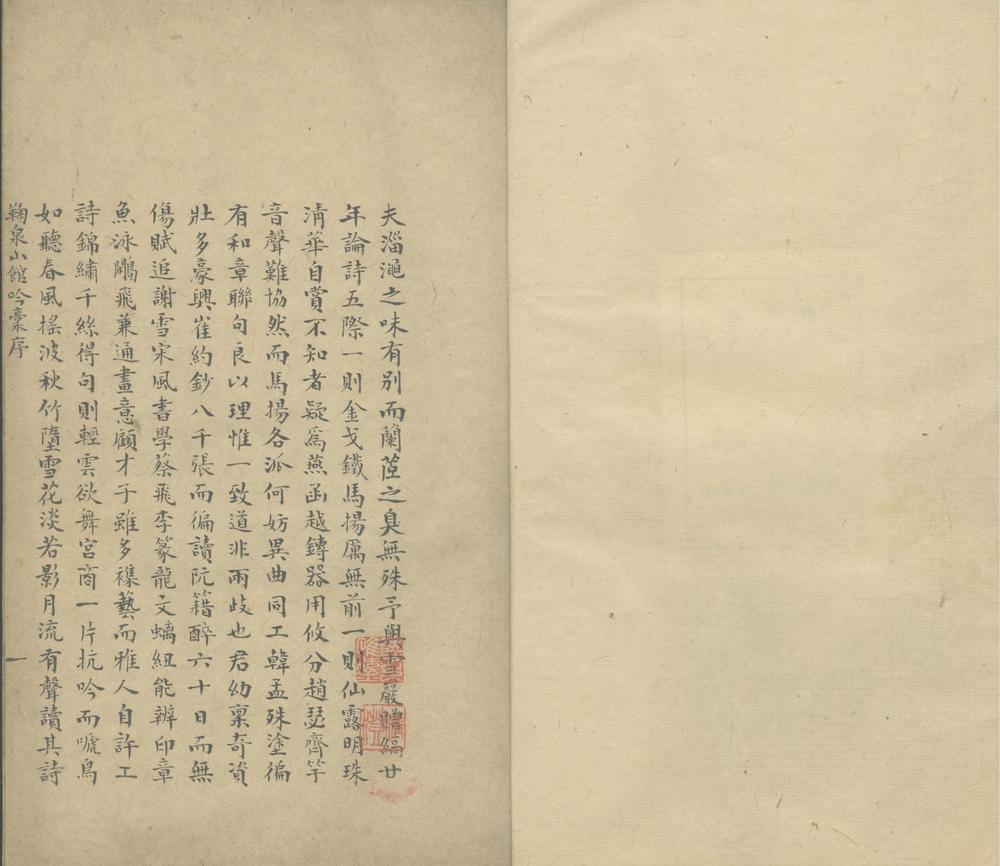 夫淄澠之味有別而蘭茝之臭無殊予與雪巖贈縞廿
年論詩五際一則金戈鐵馬揚厲無前一則仙露明珠
清華自賞不知者疑爲燕函越鏄器用攸分趙瑟齊竽
音聲難協然而馬揚各派何妨異曲同工韓孟殊塗徧
有和章聯句良以理惟一致道非兩歧也君幼稟奇資
壯多豪興崔約鈔八千張而徧讀阮籍醉六十日而無
傷賦追謝雪宋風書學蔡飛李篆龍文螭紐能辨印章
魚泳鵰飛兼通畫意顧才子雖多襍藝而雅人自許工
詩錦繡千絲得句則輕雲欲舞宮商一片抗吟而唬鳥
如聽春風搖波秋竹墮雪花淡若影月流有聲讀其詩
鞠泉山館吟稾序
一